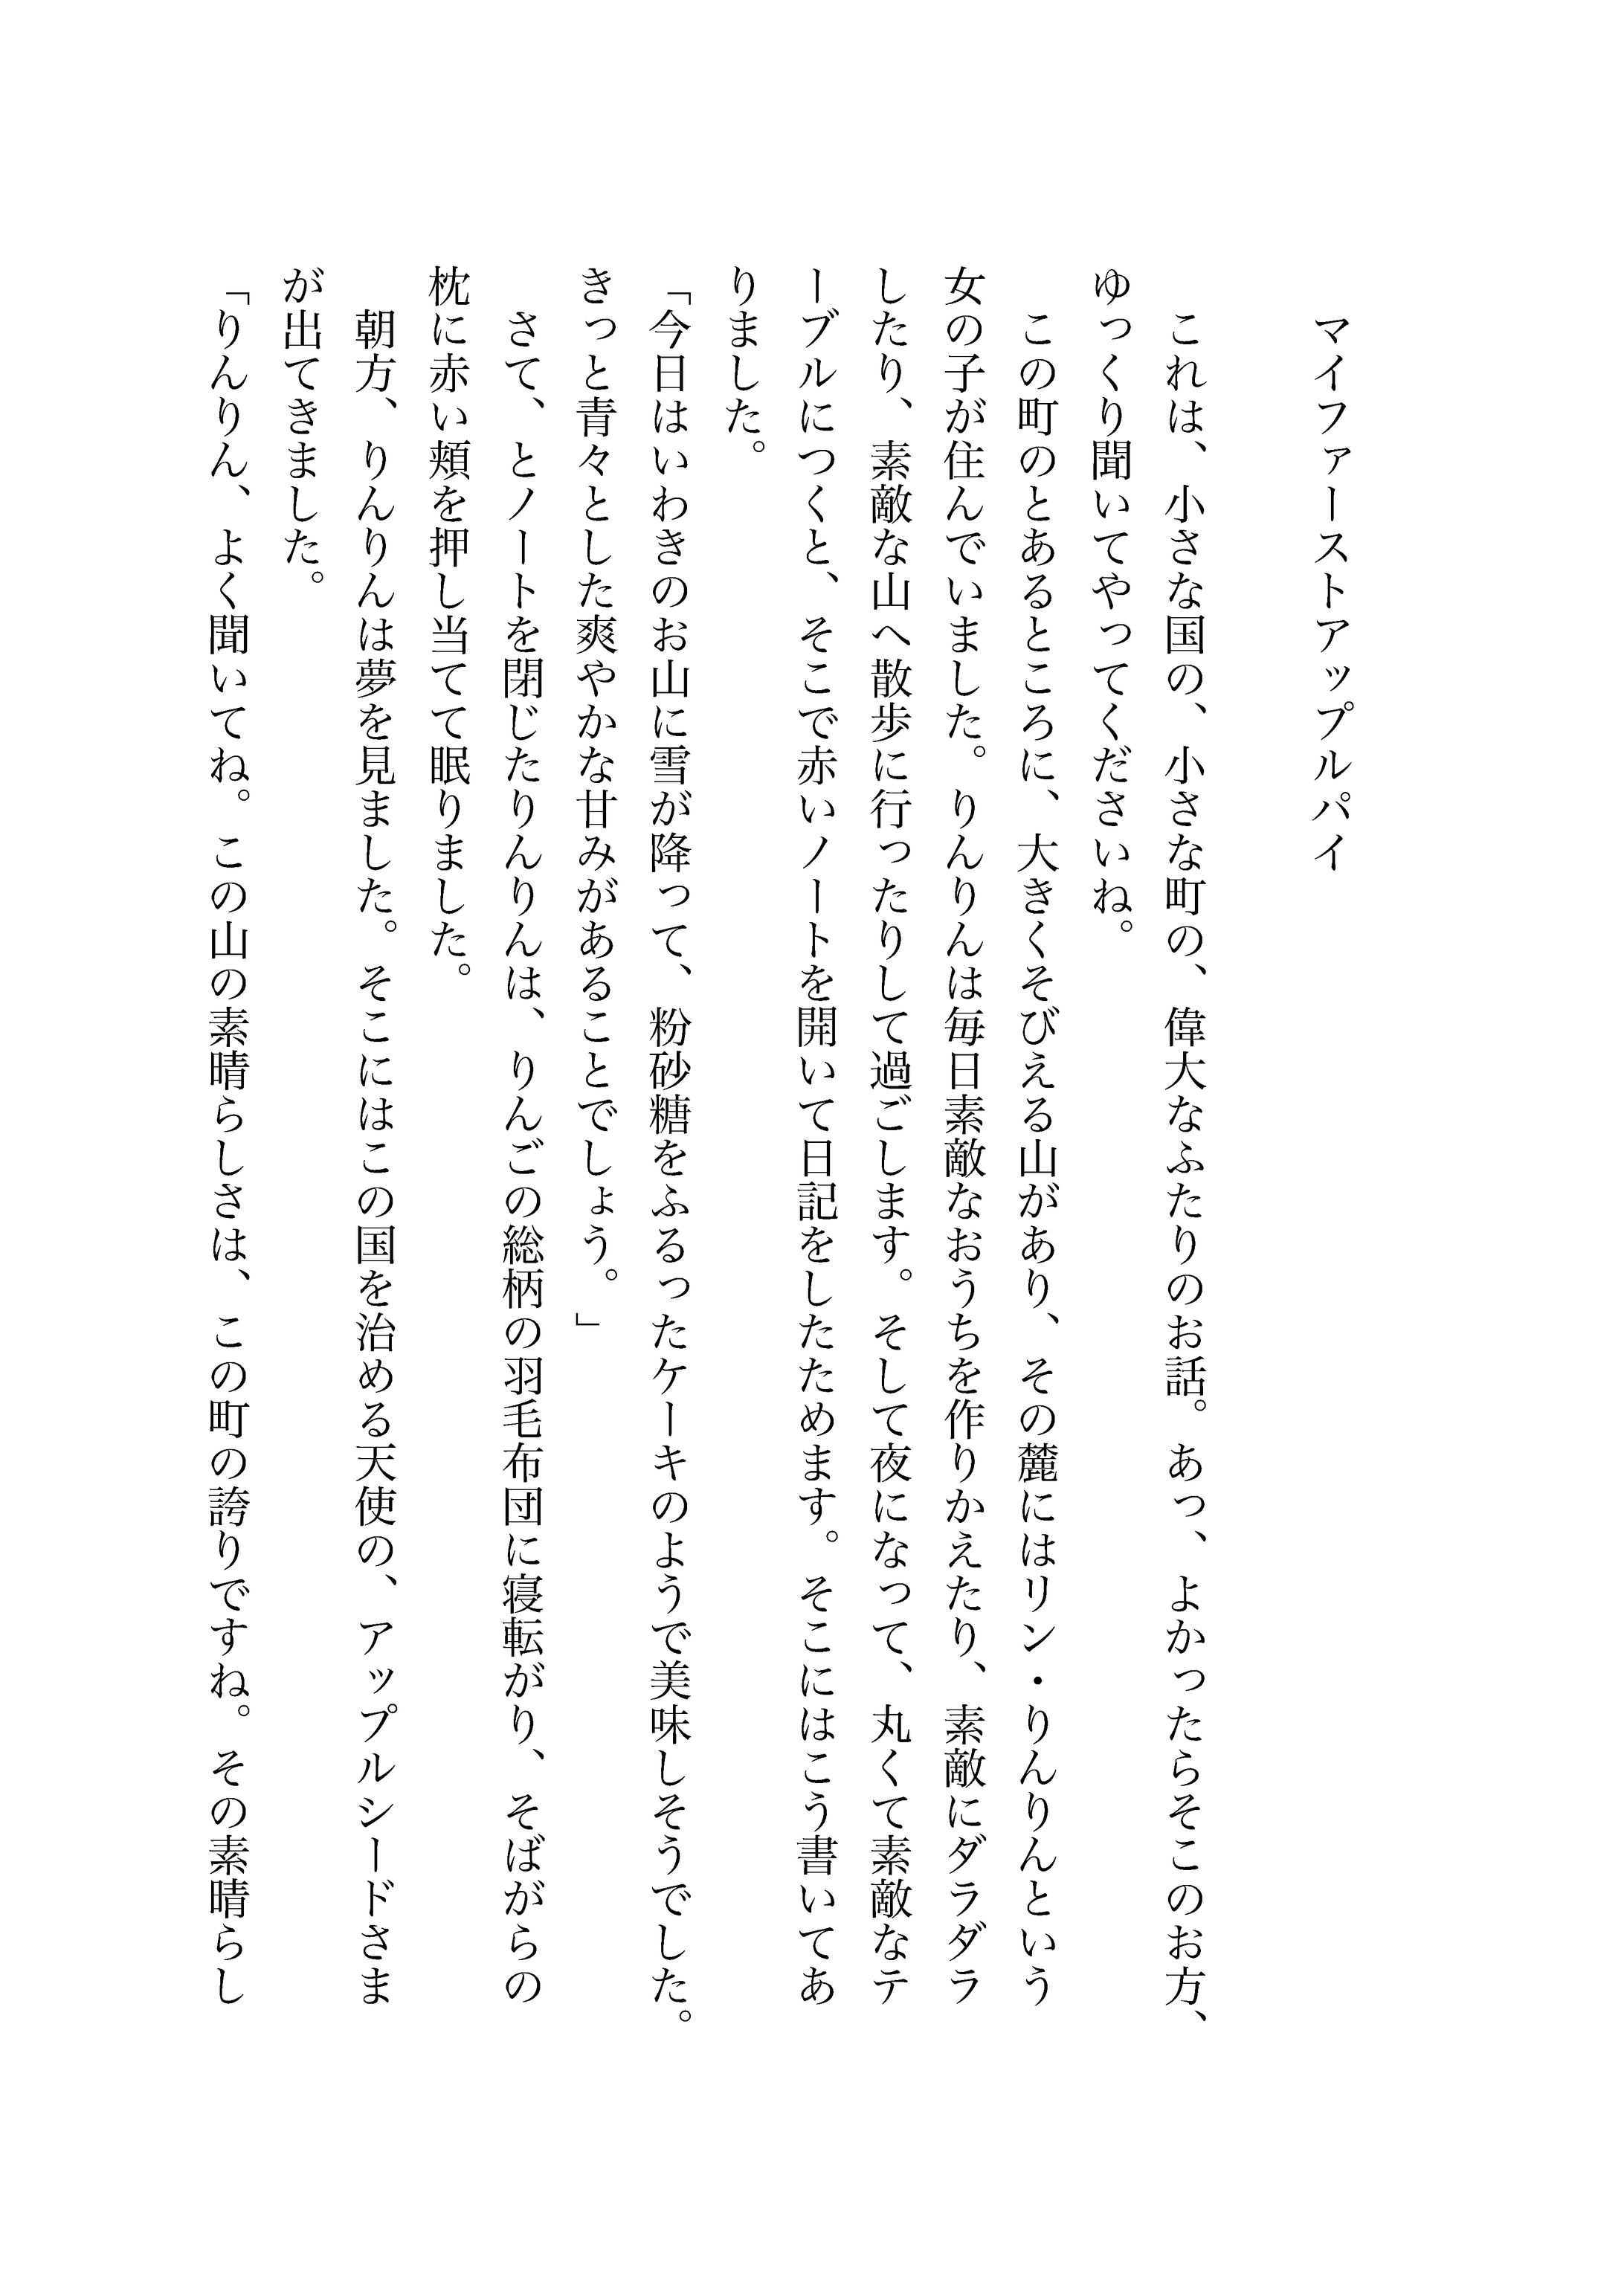 マイファーストアップルパイ
これは、小さな国の、小さな町の、偉大なふたりのお話。あっ、よかったらそこのお方、
ゆっくり聞いてやってくださいね。
この町のとあるところに、大きくそびえる山があり、その麓にはリン・りんりんという
女の子が住んでいました。りんりんは毎日素敵なおうちを作りかえたり、素敵にダラダラ
したり、素敵な山へ散歩に行ったりして過ごします。そして夜になって、丸くて素敵なテ
ーブルにつくと、そこで赤いノートを開いて日記をしたためます。そこにはこう書いてあ
りました。
「今日はいわきのお山に雪が降って、粉砂糖をふるったケーキのようで美味しそうでした。
きっと青々とした爽やかな甘みがあることでしょう。」
さて、とノートを閉じたりんりんは、りんごの総柄の羽毛布団に寝転がり、そばがらの
枕に赤い頬を押し当てて眠りました。
朝方、りんりんは夢を見ました。そこにはこの国を治める天使の、アップルシードさま
が出てきました。
「りんりん、よく聞いてね。この山の素晴らしさは、この町の誇りですね。その素晴らし